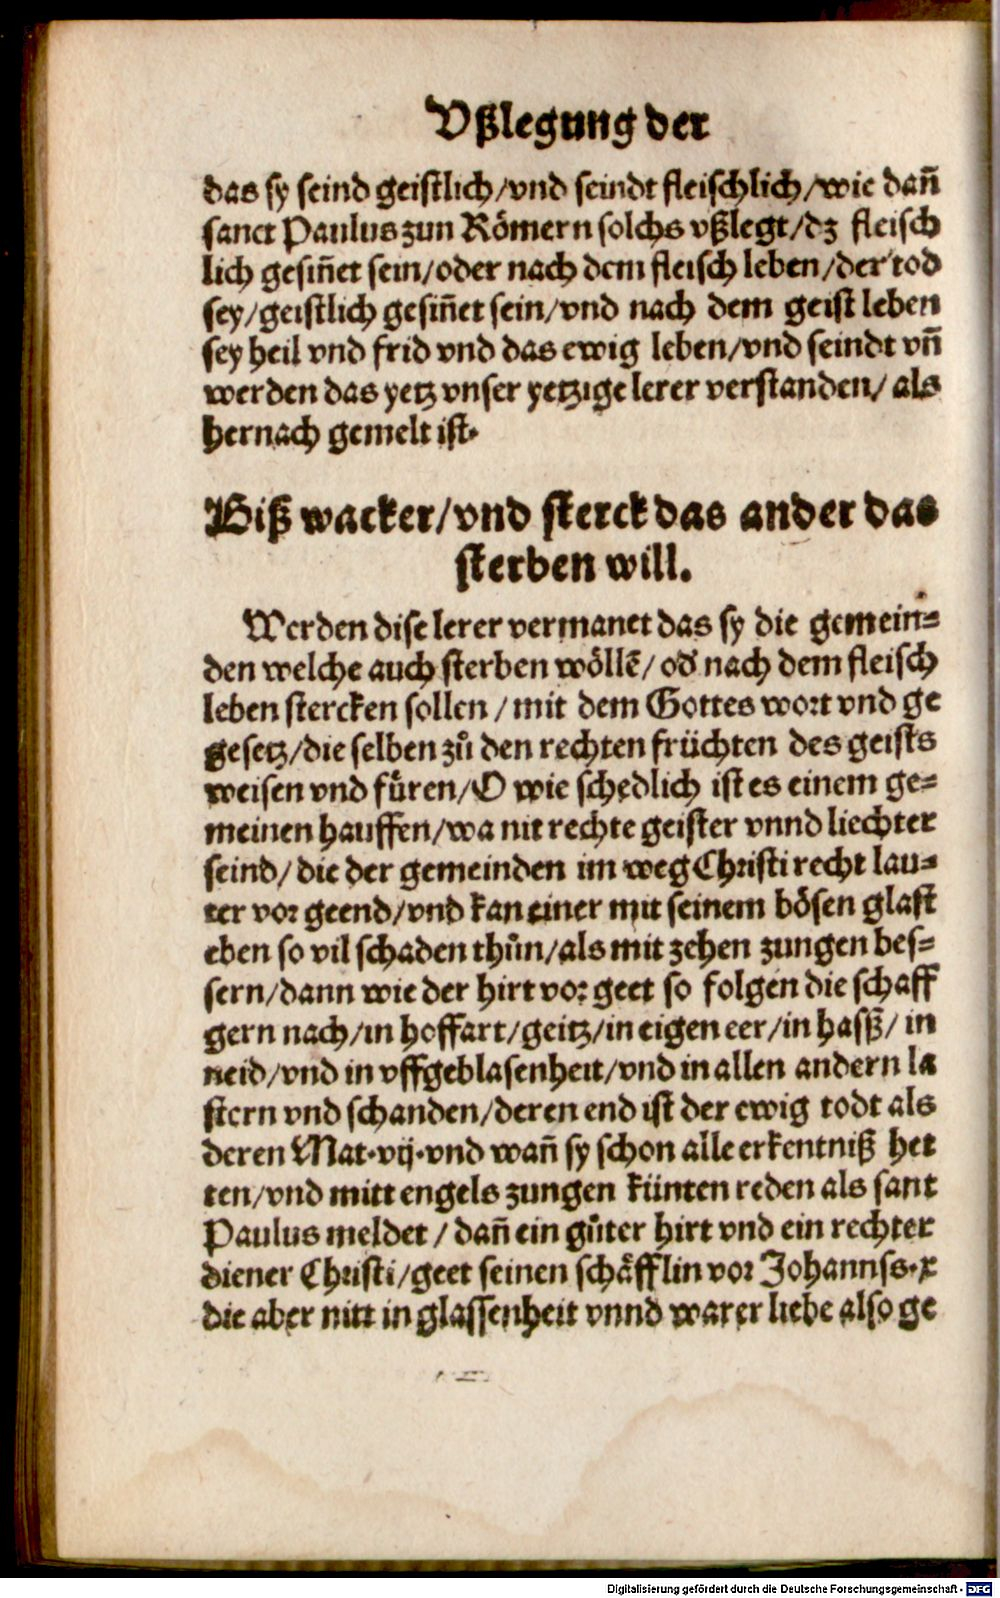 Vßlegung der
das sy seind geistlich/vnd seindt fleischlich/wie dañ
sanct Paulus zun Römern solchs vßlegt/dz fleisch
lich gesiñet sein/oder nach dem fleisch leben/der tod
sey/geistlich gesiñet sein/vnd nach dem geist leben
sey heil vnd frid vnd das ewig leben/vnd seindt vñ
werden das yetz vnser yetzige lerer verstanden/ als
hernach gemelt ist.
Biß wacker/vnd sterck das ander das
sterben will.
Werden dise lerer vermanet das sy die gemein-
den welche auch sterben wöllē/ od' nach dem fleisch
leben stercken sollen / mit dem Gottes wort vnd ge
gesetz/die selben zů den rechten früchten des geists
weisen vnd füren/O wie schedlich ist es einem ge-
meinen hauffen/wa nit rechte geister vnnd liechter
seind/ die der gemeinden im weg Christi recht lau-
ter vor geend/vnd kan einer mit seinem bösen glast
eben so vil schaden thůn/als mit zehen zungen bes-
sern/dann wie der hirt vor geet so folgen die schaff
gern nach/in hoffart/geitz/in eigen eer/in hasß/ in
neid/vnd in vffgeblasenheit/vnd in allen andern la
stern vnd schanden/deren end ist der ewig todt als
deren Mat.vij.vnd wañ sy schon alle erkentniß het
ten/vnd mitt engels zungen künten reden als sant
Paulus meldet / dañ ein gůter hirt vnd ein rechter
diener Christi/geet seinen schäfflin vor Johanns.x
die aber nitt in glassenheit vnnd warer liebe also ge
Digitalisierung gefördert durch die Deutsche Forschungsgemeinschaft - DFG